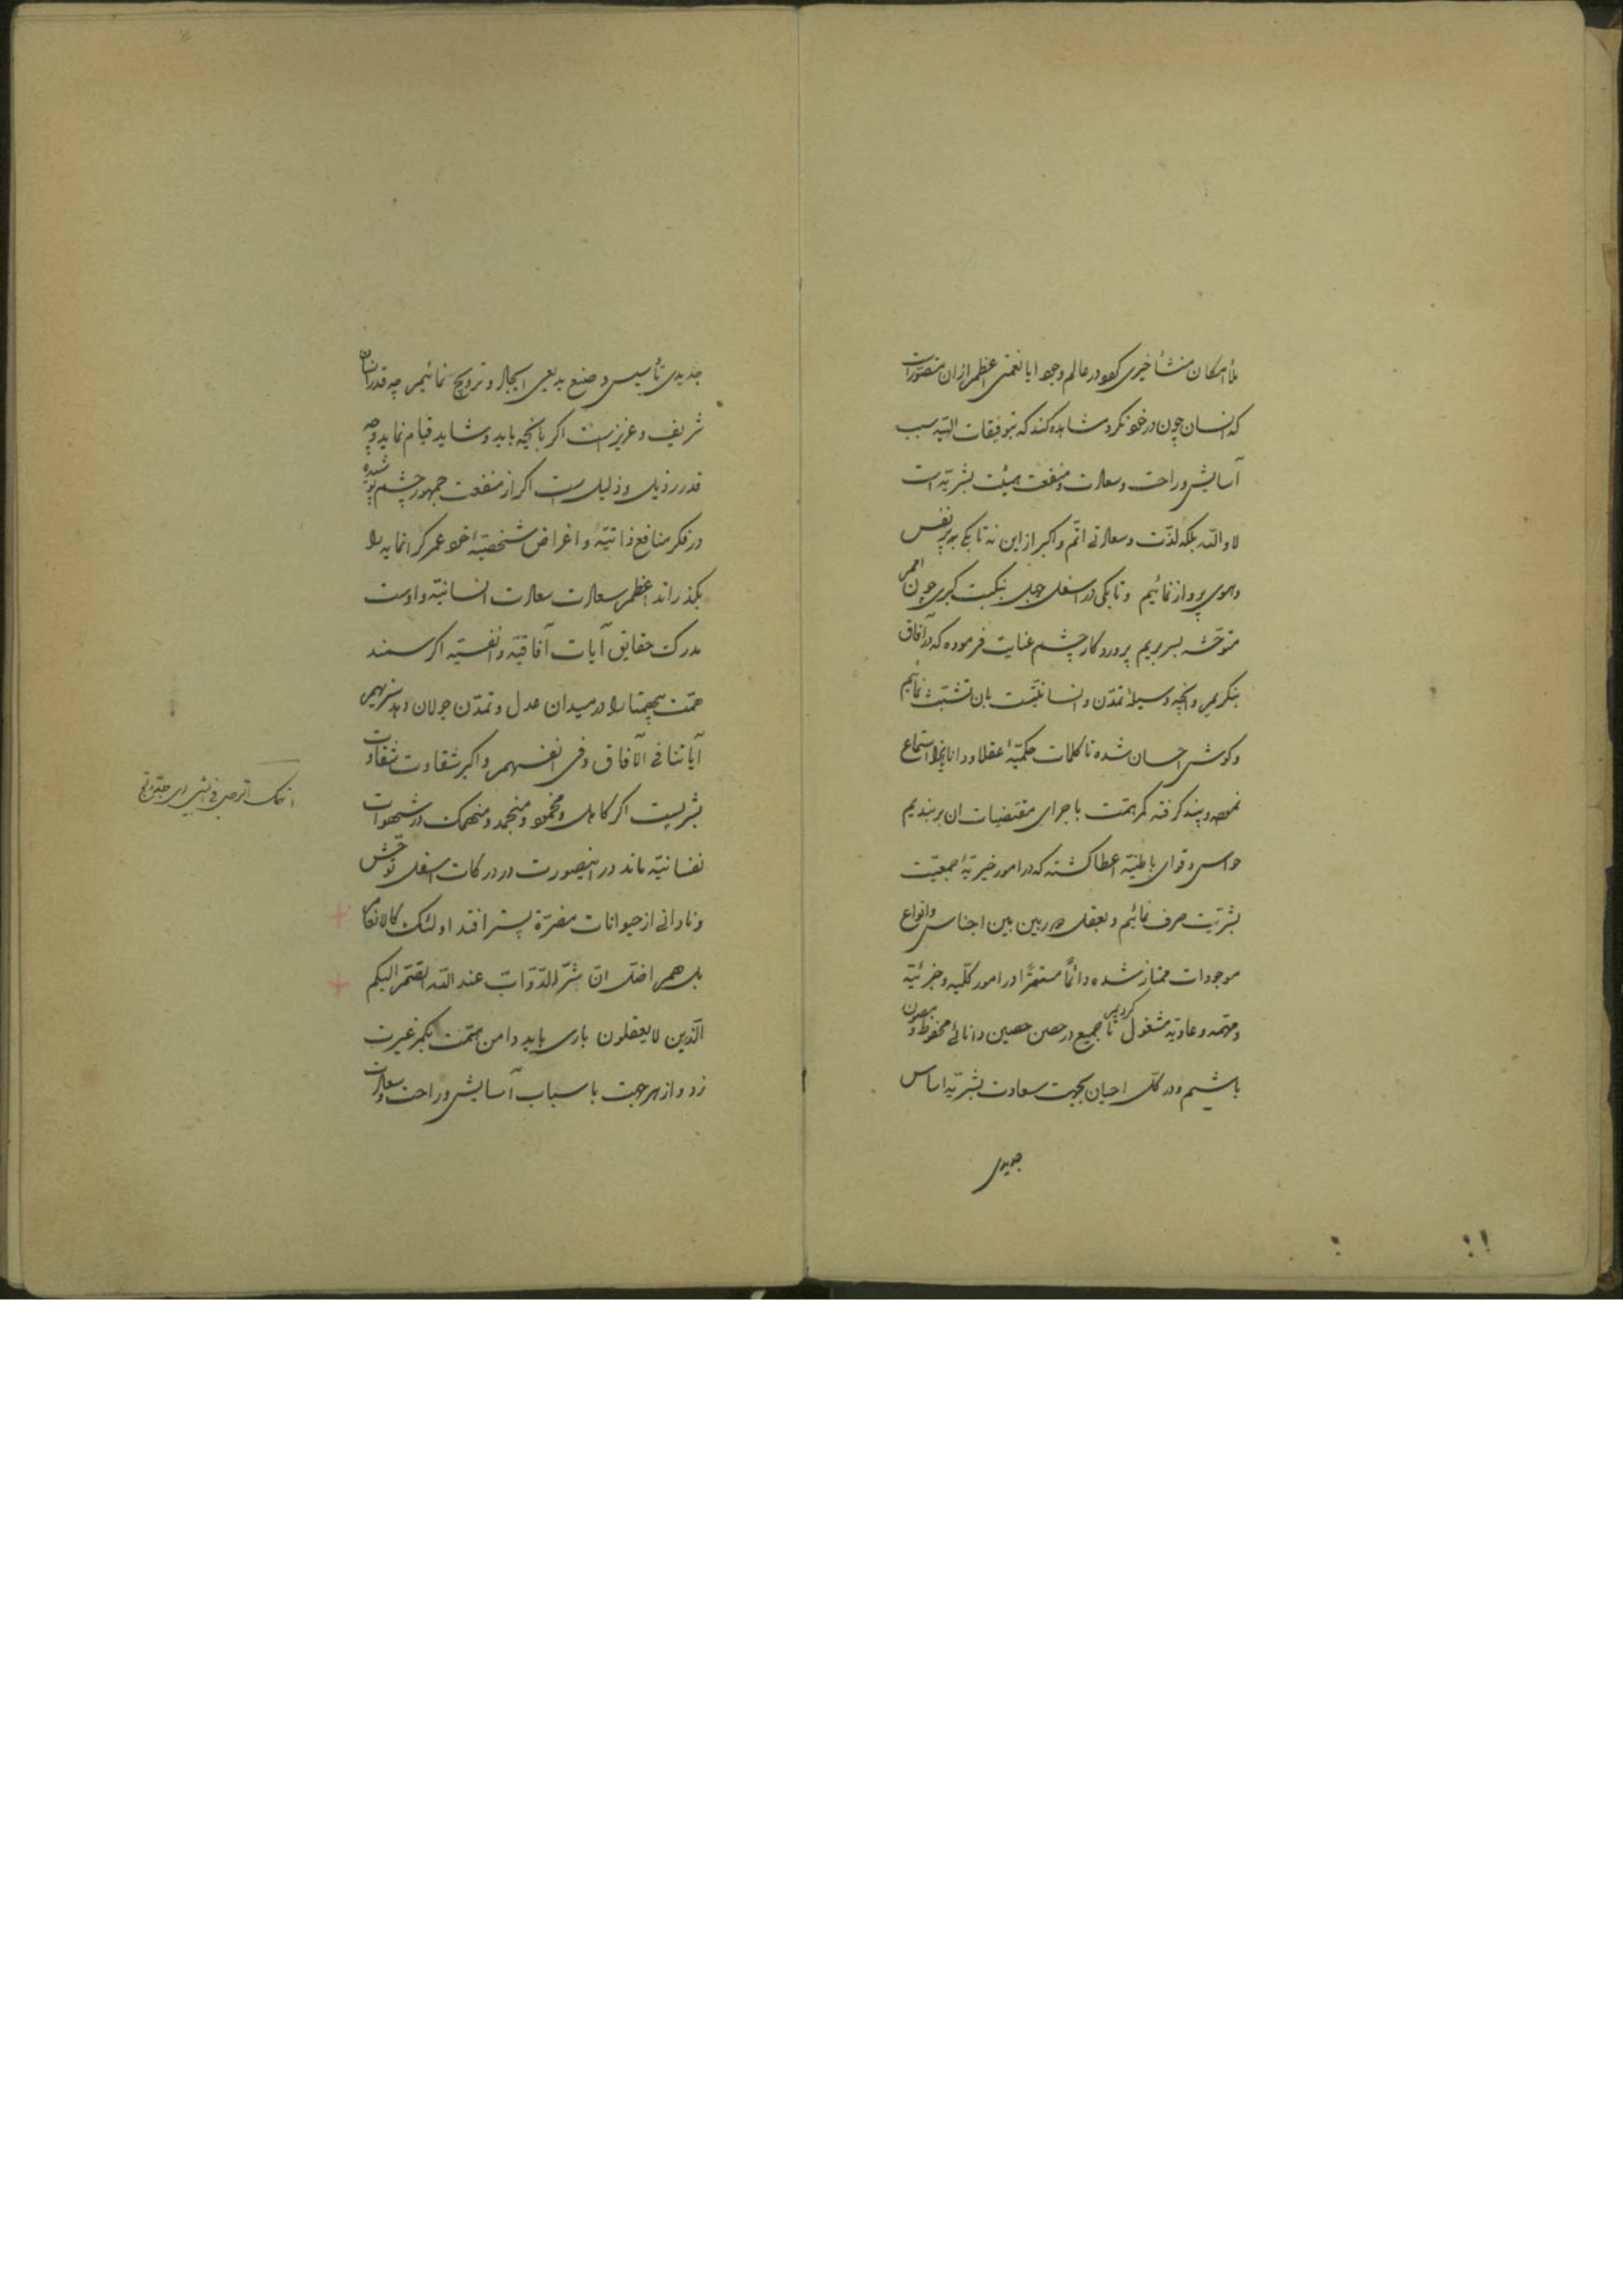 ملأ امکان منشأ خیری گردد در عالم وجود ایا نعمتی اعظم از ان متصوّر است
که انسان چون در خود نگرد مشاهده کند که بتوفیقات الهیّه سبب
آسایش و راحت و سعادت و منفعت هیئت بشریّه است
لا والله بلکه لذّت و سعادتی اتمّ و اکبر از این نه تا بکی بپر نفس
و هوی پرواز نمائیم و تا بکی در اسفل جهل بنکبت کبری چون امم
متوحّشه بسر بریم پروردگار چشم عنایت فرموده که در آفاق
بنگریم و انچه وسیلهٔ تمدّن و انسانیّتست بان تشبّث نمائیم
و گوش احسان شده تا کلمات حکمیّهٔ عقلا و دانایان را استماع
نموده و پند گرفته کمر همّت باجرای مقتضیات ان بر بندیم
حواس و قوای باطنیّه اعطا گشته که در امور خیریّهٔ جمعیّت
بشریّت صرف نمائیم و بعقل دوربین بین اجناس و انواع
موجودات ممتاز شده دائماً مستمرّاً در امور کلّیه و جزئیّه
و مهمّه و عادیّه مشغول گردیم تا جمیع در حصن حصین دانائی محفوظ و مصون
باشیم و در کلّ احیان بجهت سعادت بشریّه اساس
جدیدی
جدیدی تأسیس و صنع بدیعی ایجاد و ترویج نمائیم چه قدر انسان
شریف و عزیز است اگر بانچه باید و شاید قیام نماید و چه
قدر رذیل و ذلیل است اگر از منفعت جمهور چشم پوشیده
در فکر منافع ذاتیّه و اغراض شخصیّهٔ خود عمر گرانمایه را
بگذراند اعظم سعادت سعادت انسانیّه و اوست
مدرک حقایق آیات آفاقیّه و انفسیّه اگر سمند
همّت بیهمتا را در میدان عدل و تمدّن جولان دهد سنریهم
آیاتنا فی الآفاق و فی انفسهم و اکبر شقاوت شقاوت
بشریست اگر کاهل و مخمود و منجمد و منهمک در شهوات
نفسانیّه ماند در اینصورت در درکات اسفل توحّش
و نادانی از حیوانات مضرّة پستر افتد اولئک کالانعام
بل هم اضلّ انّ شرّ الدّوابّ عند الله الصّمّ البکم
الّذین لا یعقلون باری باید دامن همّت بکمر غیرت
زد و از هر جهت باسباب آسایش و راحت و سعادت